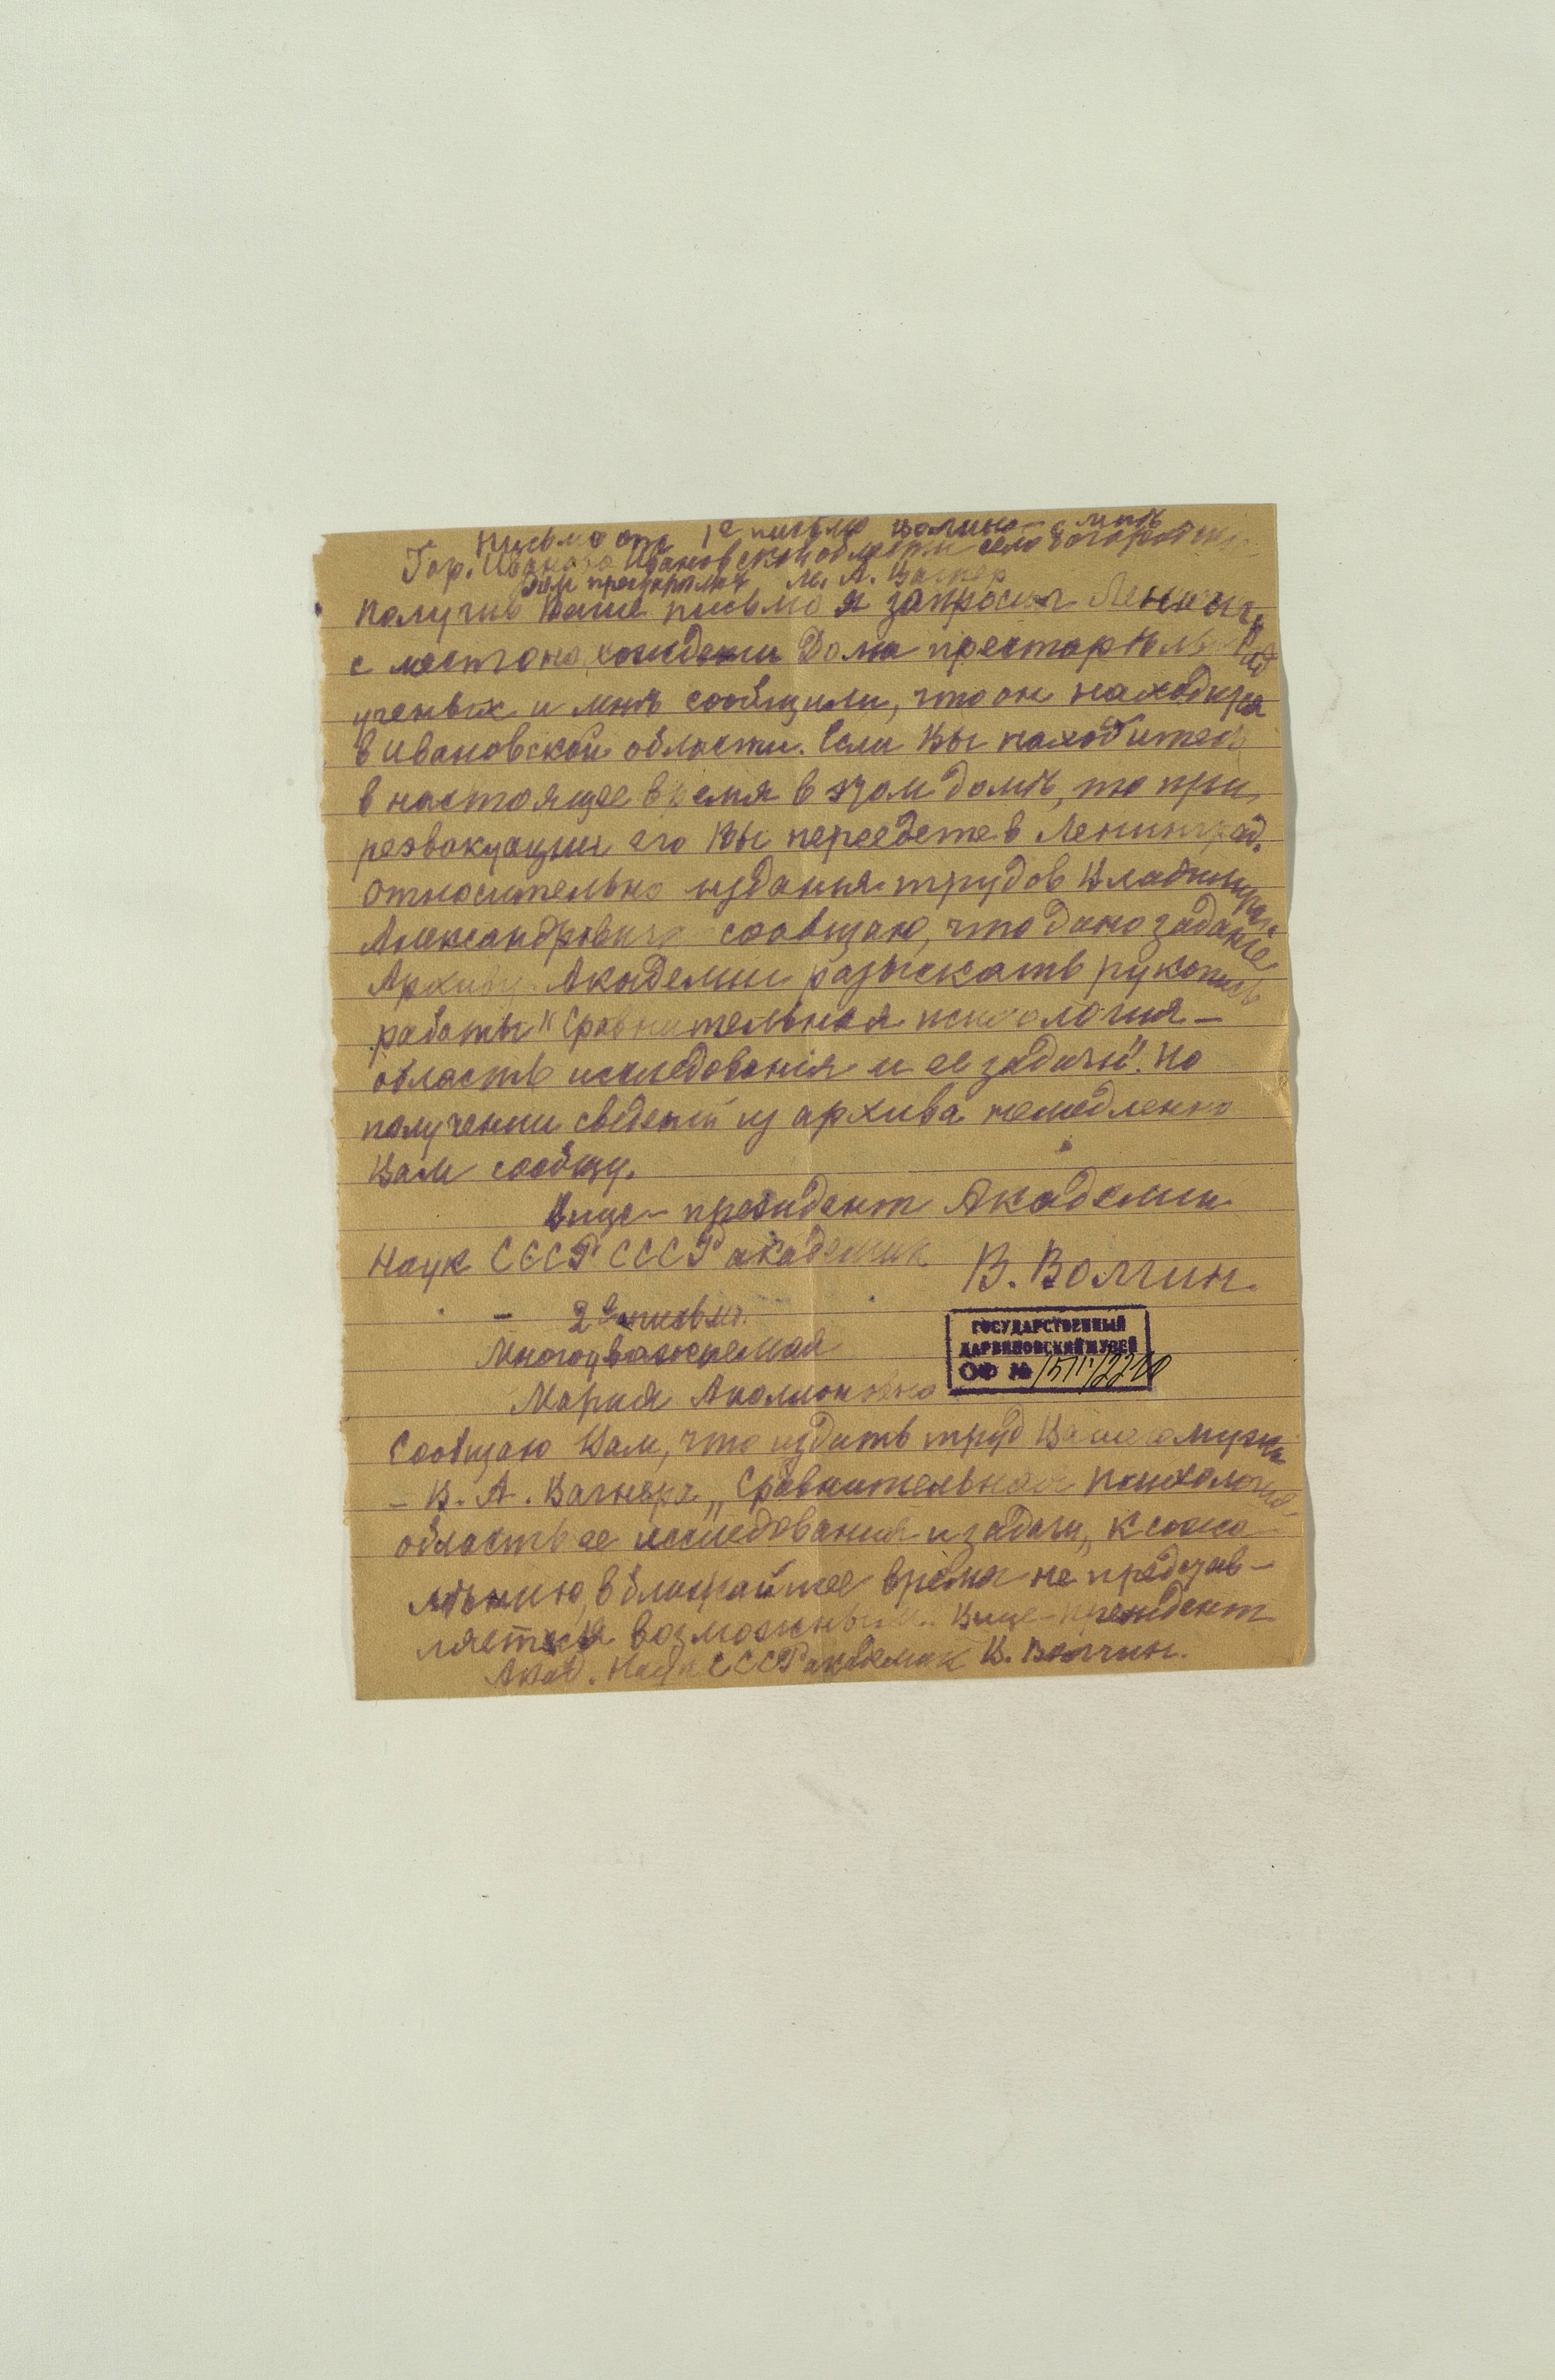 Письмо отв 1е письмо Волгина мнѣ
Гор. Иваново Ивановской области село Богородское
Дом престарелых М. А. Вагнер
Получив Ваше письмо я запросил Ленинград
с местонахождении Дома престарѣлых
ученых и мнѣ сообщили, что он находится
в Ивановской области. Если Вы находитесь
в настоящее время в этом домѣ, то при
реэвакуации его Вы переедете в Ленинград.
Относительно издания трудов Владимира
Александровича сообщаю, что дано задание
Архиву Академии разыскать рукопись
работы "Сравнительная психология –
область исследования и ее задачи". По
получении сведений из архива немедленно
Вам сообщу.
Вице – президент Академии
Наук СССР СССР академик В. Волгин.
– 2е письмо.
Многоуважаемая
ГОСУДАРСТВЕННЫЙ
ДАРВИНОВСКИЙ МУЗЕЙ
ОФ №
Мария Аполлоновна
Сообщаю Вам, что издать труд Вашего мужа
– В. А. Вагнера „Сравнительная психология –
область ее исследования и задачи„ к сожа
лѣнию, в ближайшее время не представ –
ляется возможным. Вице – президент
Акад. Наук СССР академик В. Волгин.